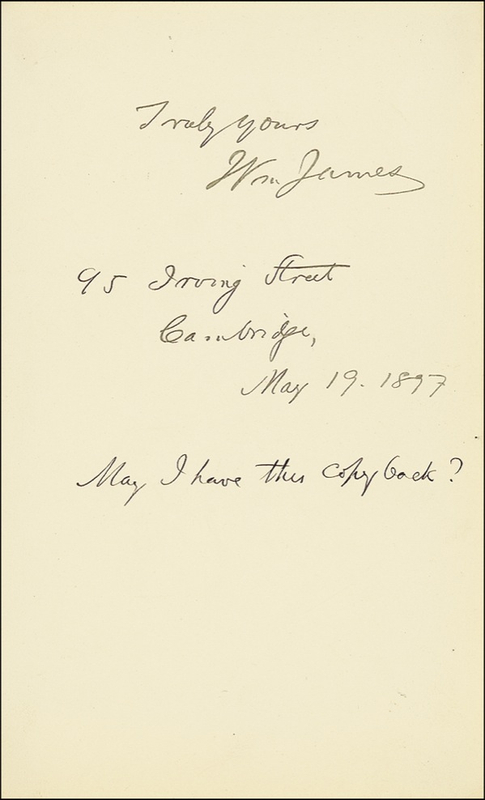 Truly yours
Wm James
95 Irving Street
Cambridge,
May 19. 1897
May I have this copy back?